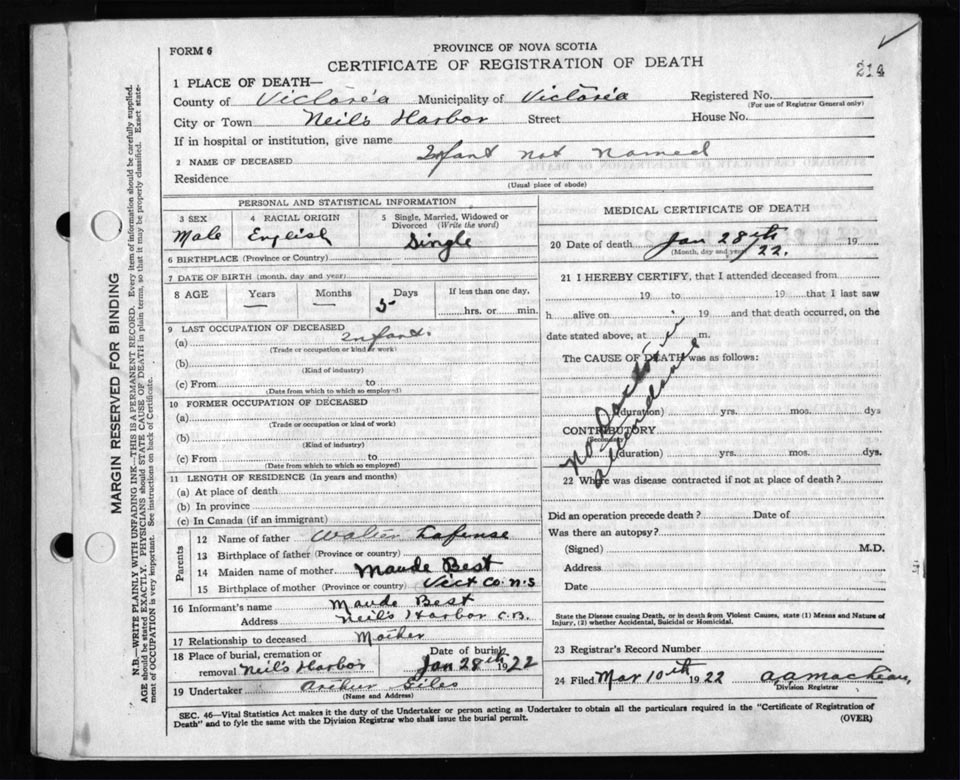 FORM 6
PROVINCE OF NOVA SCOTIA
CERTIFICATE OF REGISTRATION OF DEATH
214
1 PLACE OF DEATH—
County of Victoria Municipality of Victoria Registered No.
(For use of Registrar General only)
City or Town Neil's Harbor Street House No.
If in hospital or institution, give name
2 NAME OF DECEASED Infant not named
Residence
(Usual place of abode)
PERSONAL AND STATISTICAL INFORMATION
3 SEX 4 RACIAL ORIGIN 5 Single, Married, Widowed or Divorced (Write the word)
Male English Single
6 BIRTHPLACE (Province or Country)
7 DATE OF BIRTH (month, day and year)
8 AGE Years Months Days If less than one day,
— — 5 hrs. or min.
9 LAST OCCUPATION OF DECEASED
(a) Infant.
(Trade or occupation or kind of work)
(b)
(Kind of industry)
(c) From to
(Date from which to which so employed)
10 FORMER OCCUPATION OF DECEASED
(a)
(Trade or occupation or kind of work)
(b)
(Kind of industry)
(c) From to
(Date from which to which so employed)
11 LENGTH OF RESIDENCE (In years and months)
(a) At place of death
(b) In province
(c) In Canada (if an immigrant)
Parents
12 Name of father Walter
13 Birthplace of father (Province or country)
14 Maiden name of mother Maude Best
15 Birthplace of mother (Province or country) Vict Co. N.S
16 Informant's name Maude Best
Address Neil's Harbor C.B.
17 Relationship to deceased Mother
18 Place of burial, cremation or removal Neil's Harbor Date of burial Jan 28th 1922
19 Undertaker Arthur Giles
(Name and Address)
MEDICAL CERTIFICATE OF DEATH
20 Date of death Jan 28th 22. 19
(Month, day and year)
21 I HEREBY CERTIFY, that I attended deceased from
19 to 19 that I last saw
h alive on 19 and that death occurred, on the
date stated above, at m.
The CAUSE OF DEATH was as follows:
No Doctor in attendance
(duration) yrs. mos. dys
CONTRIBUTORY
(Secondary)
(duration) yrs. mos. dys.
22 Where was disease contracted if not at place of death?
Did an operation precede death? Date of
Was there an autopsy?
(Signed) M.D.
Address
Date
State the Disease causing Death, or in death from Violent Causes, state (1) Means and Nature of
Injury, (2) whether Accidental, Suicidal or Homicidal.
23 Registrar's Record Number
24 Filed Mar 10th 1922
Division Registrar
SEC. 46—Vital Statistics Act makes it the duty of the Undertaker or person acting as Undertaker to obtain all the particulars required in the "Certificate of Registration of
Death" and to fyle the same with the Division Registrar who shall issue the burial permit. (OVER)
MARGIN RESERVED FOR BINDING
N.B.—WRITE PLAINLY WITH UNFADING INK—THIS IS A PERMANENT RECORD. Every item of information should be carefully supplied.
AGE should be stated EXACTLY. PHYSICIANS should STATE CAUSE OF DEATH in plain terms, so that it may be properly classified. Exact state-
ment of OCCUPATION is very important. See instructions on back of Certificate.